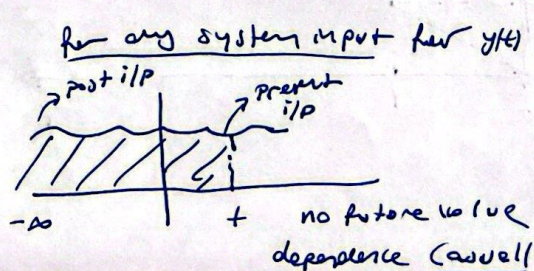 for any system input for y(t)
past i/p
present
i/p
-∞
t
no future value
dependence (causal)